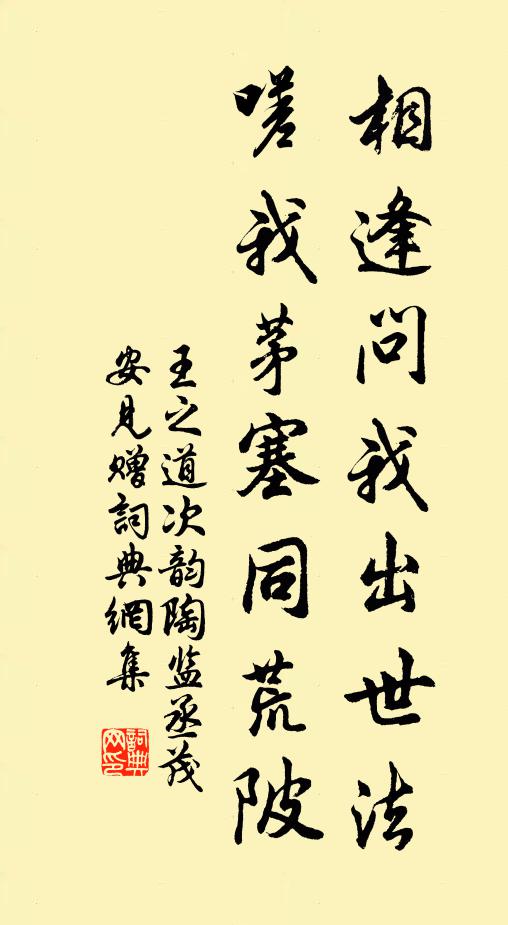 相逢问我出世法
嗟我茅塞同荒陂
王之道次韵陶监丞茂
安见赠詞典網集
詞典
网印